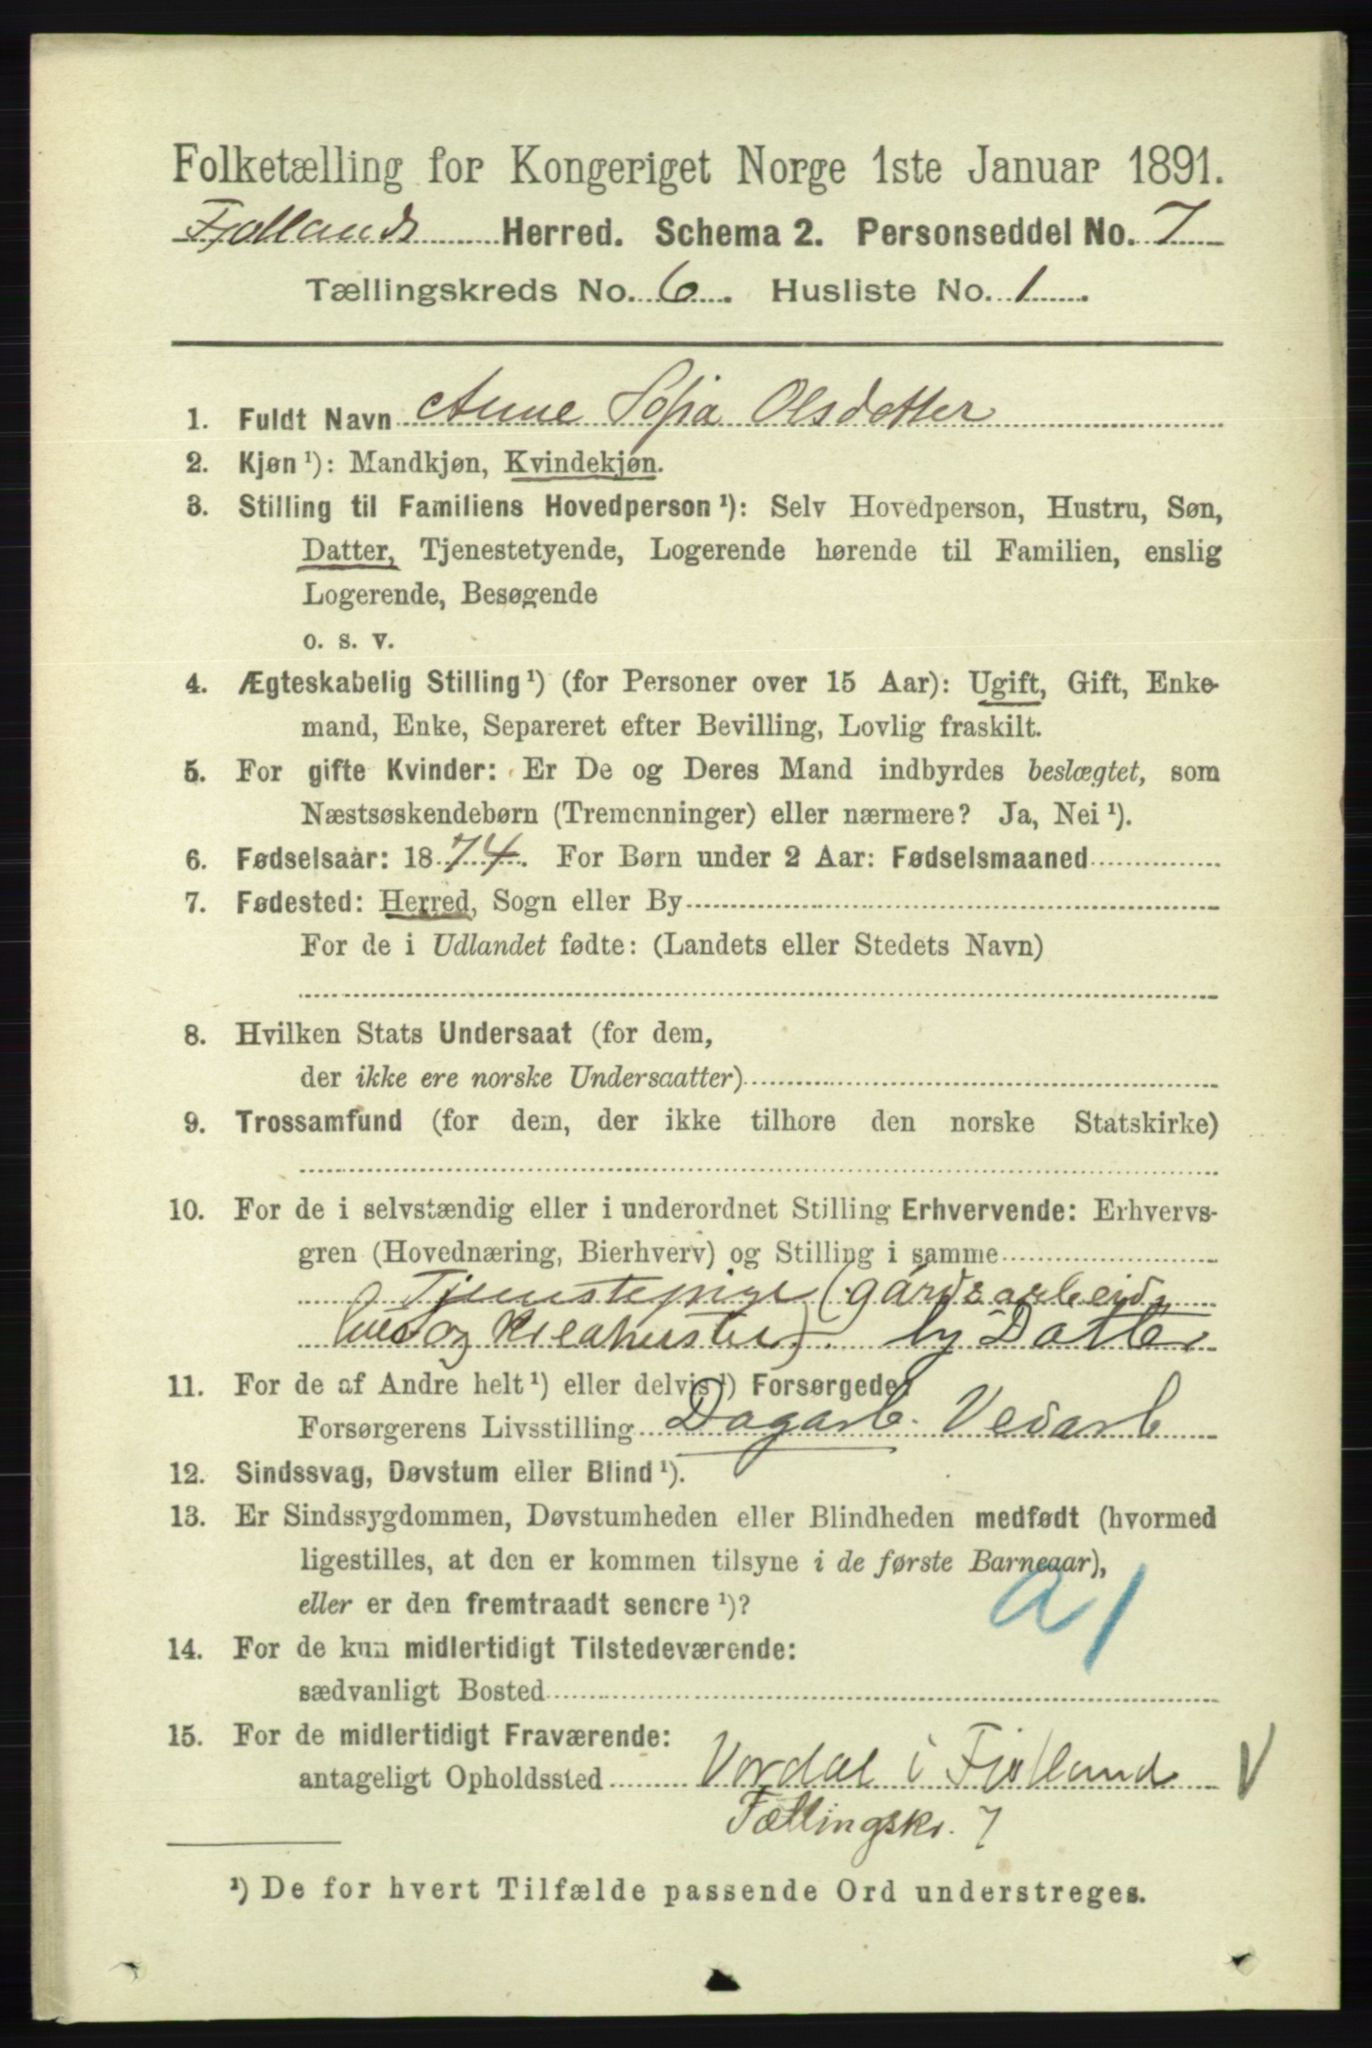 Folketælling for Kongeriget Norge 1ste Januar 1891.
Fjotlands Herred. Schema 2. Personseddel No. 7
Tællingskreds No. 6. Husliste No. 1.
1. Fuldt Navn Anne Sofia Olsdatter
2. Kjøn ¹): Mandkjøn, Kvindekjøn.
3. Stilling til Familiens Hovedperson ¹): Selv Hovedperson, Hustru, Søn,
Datter, Tjenestetyende, Logerende hørende til Familien, enslig
Logerende, Besøgende
o. s. v.
4. Ægteskabelig Stilling ¹) (for Personer over 15 Aar): Ugift, Gift, Enke-
mand, Enke, Separeret efter Bevilling, Lovlig fraskilt.
5. For gifte Kvinder: Er De og Deres Mand indbyrdes beslægtet, som
Næstsøskendebørn (Tremenninger) eller nærmere? Ja, Nei ¹).
6. Fødselsaar: 1874. For Børn under 2 Aar: Fødselsmaaned
7. Fødested: Herred, Sogn eller By
For de i Udlandet fødte: (Landets eller Stedets Navn)
8. Hvilken Stats Undersaat (for dem,
der ikke ere norske Undersaatter)
9. Trossamfund (for dem, der ikke tilhore den norske Statskirke)
10. For de i selvstændig eller i underordnet Stilling Erhvervende: Erhvervs-
gren (Hovednæring, Bierhverv) og Stilling i samme
Tjenstepige (gårdsarbeid,
og Datter
11. For de af Andre helt ¹) eller delvis ¹) Forsørgede:
Forsørgerens Livsstilling Dagarb. Vedarb
12. Sindssvag, Døvstum eller Blind ¹).
13. Er Sindssygdommen, Døvstumheden eller Blindheden medfødt (hvormed
ligestilles, at den er kommen tilsyne i de første Barneaar),
eller er den fremtraadt senere ¹)?
14. For de kun midlertidigt Tilstedeværende:
sædvanligt Bosted
15. For de midlertidigt Fraværende:
antageligt Opholdssted Vordal i Fjotland V
Tællingskr. 7
¹) De for hvert Tilfælde passende Ord understreges.